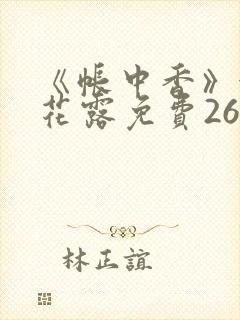 《帳中香》
花露免費26
林正誼